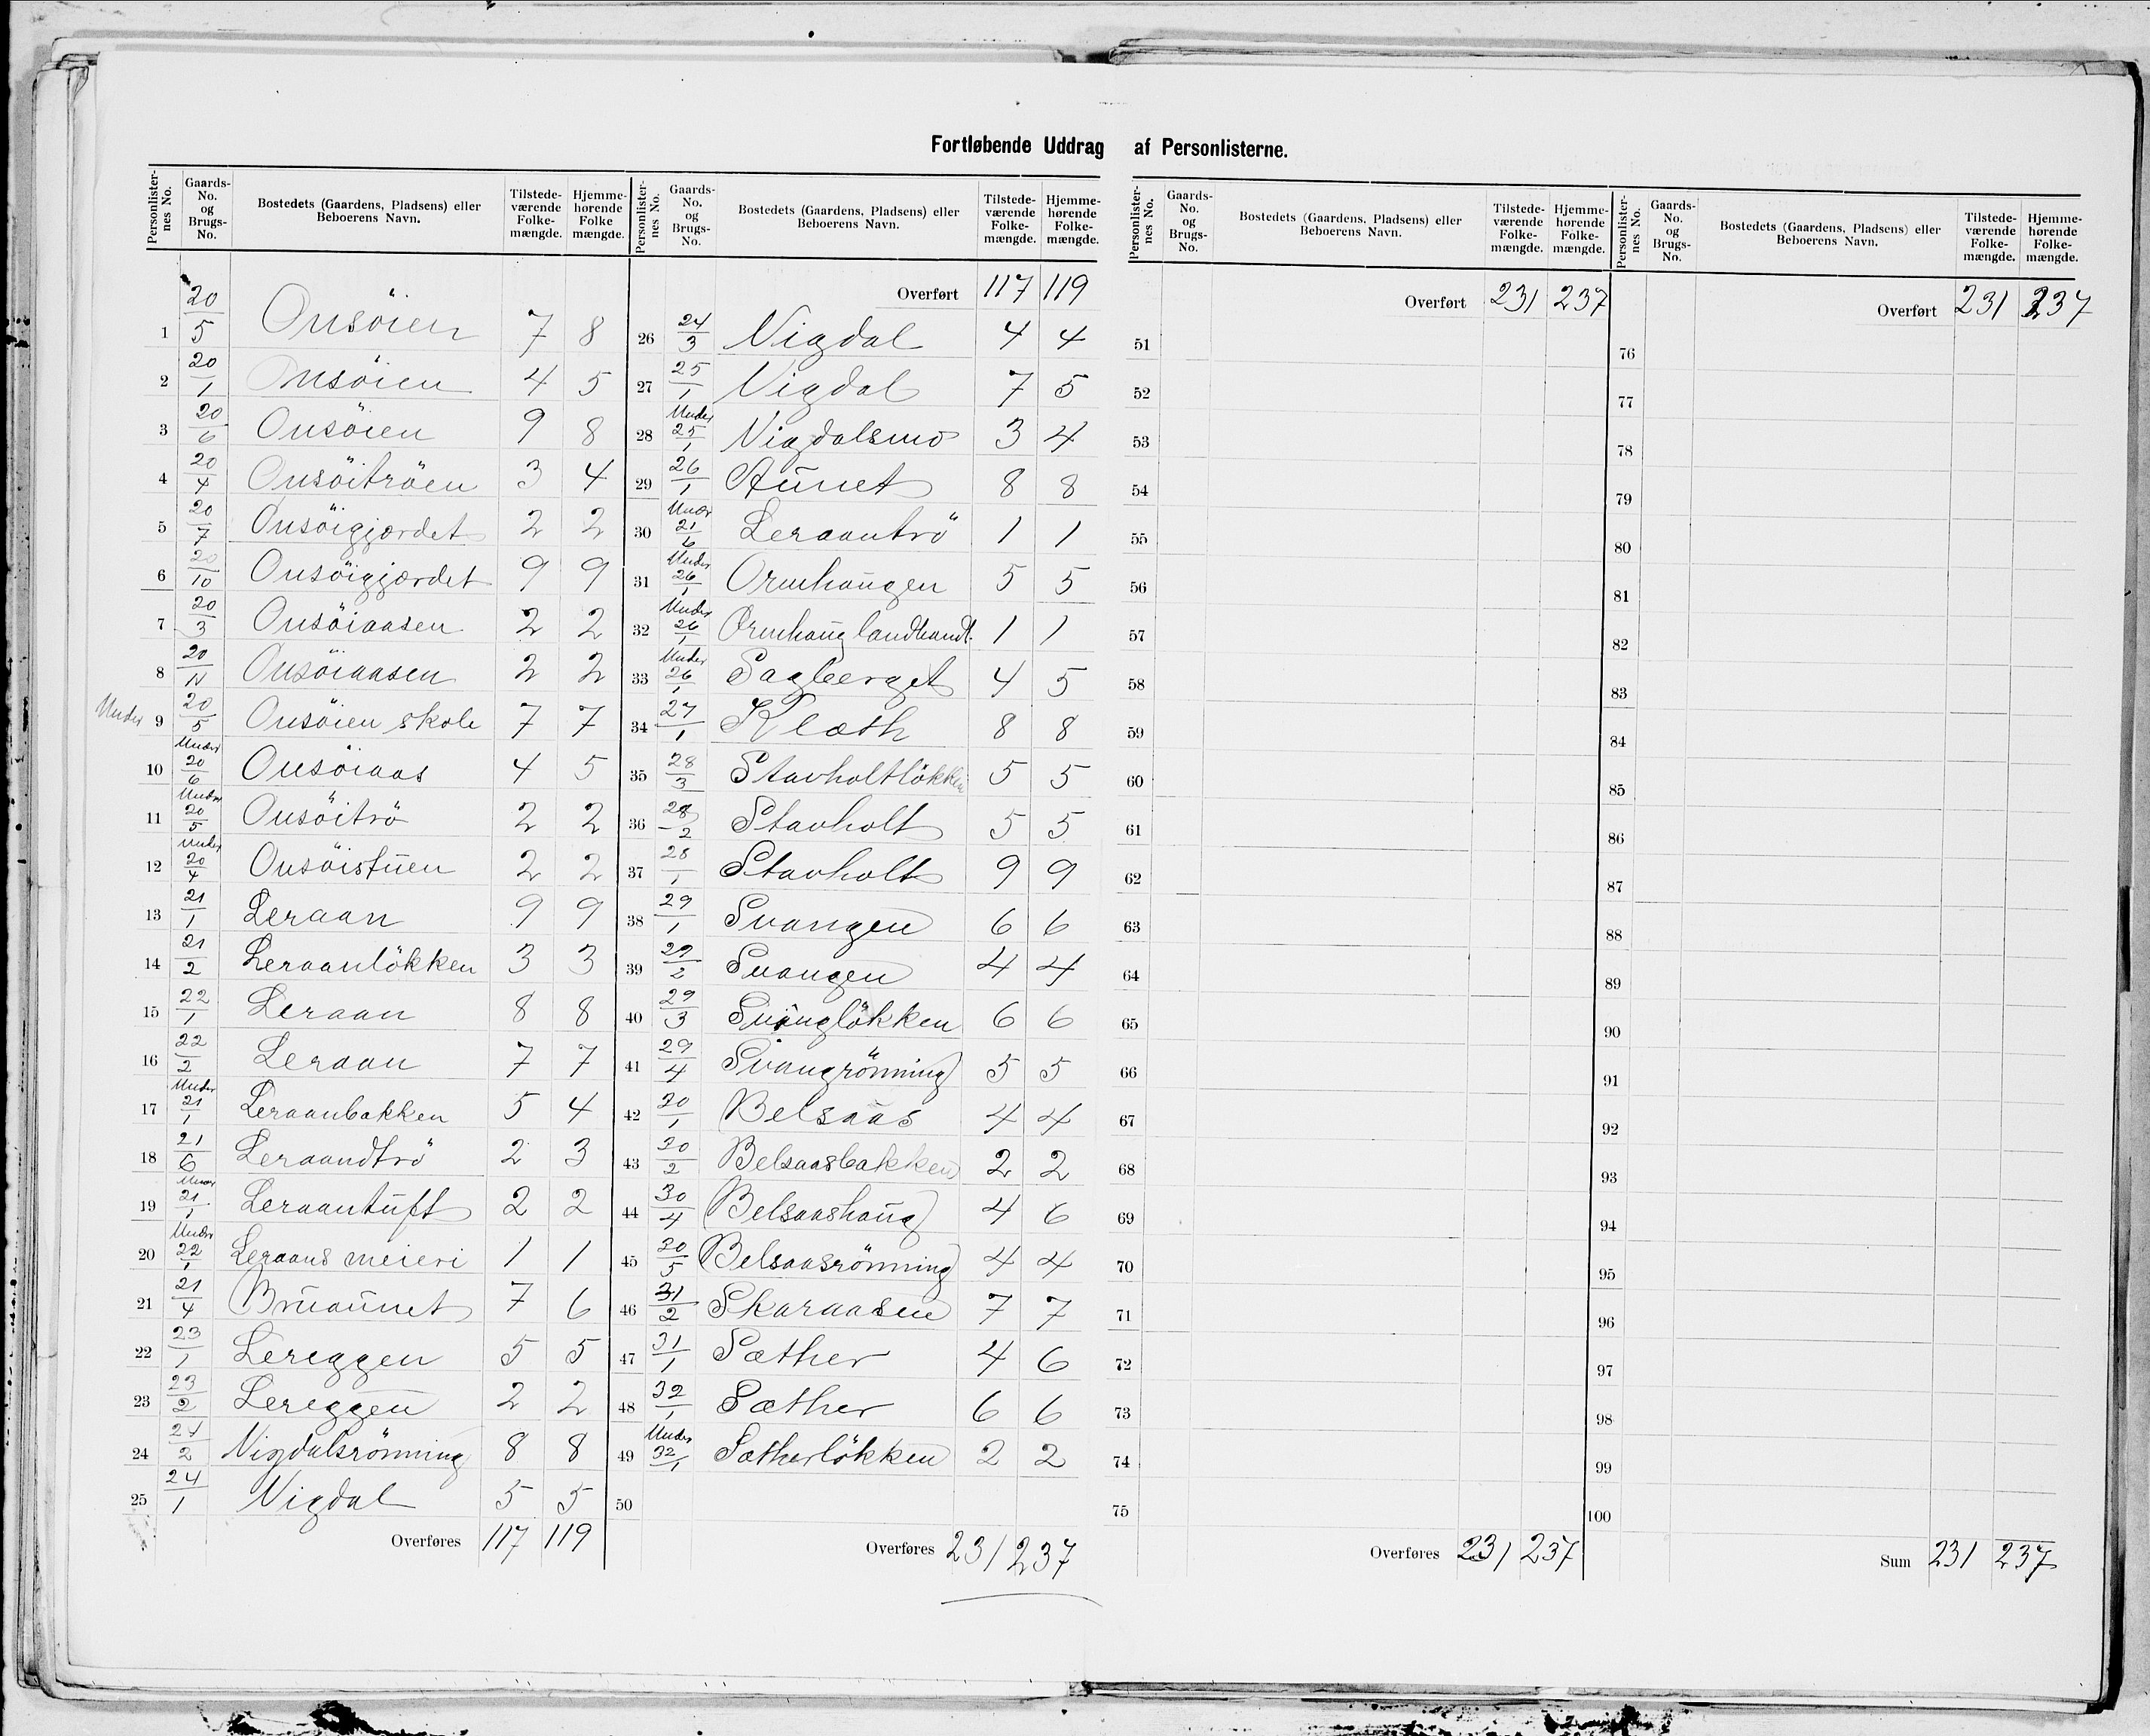 Fortløbende Uddrag af Personlisterne.
Personlisternes No. Gaards-No. og Brugs-No. Bostedets (Gaardens, Pladsens) eller Beboerens Navn. Tilstedeværende Folkemængde. Hjemmehørende Folkemængde.
1 20/5 Onsöien 7 8
2 20/1 Onsöien 4 5
3 20/6 Onsöien 9 8
4 20/4 Onsöitröen 3 4
5 20/7 Onsöigjordet 2 2
6 20/10 Onsöigjærdet 9 9
7 20/3 Onsöiaasen 2 2
8 20/11 Onsöiaasen 2 2
Under 9 20/5 Onsöien skole 7 7
10 Under 20/6 Onsöiaas 4 5
11 Under 20/5 Onsöitrö 2 2
12 Under 20/4 Onsöistuen 2 2
13 21/1 Leraan 9 9
14 21/2 Leraanlökken 3 3
15 22/1 Leraan 8 8
16 22/2 Leraan 7 7
17 Under 21/1 Leraanbakken 5 4
18 21/6 Leraandtrö 2 3
19 Under 21/1 Leraantuft 2 2
20 Under 22/1 Leraans meieri 1 1
21 21/4 Bruaunet 7 6
22 23/1 Lereggen 5 5
23 23/2 Lereggen 2 2
24 24/2 Vigdalsrönning 8 8
25 24/1 Vigdal 5 5
Overføres 117 119
Personlisternes No. Gaards-No. og Brugs-No. Bostedets (Gaardens, Pladsens) eller Beboerens Navn. Tilstedeværende Folkemængde. Hjemmehørende Folkemængde.
Overført 117 119
26 24/3 Vigdal 4 4
27 25/1 Vigdal 7 5
28 Under 25/1 Vigdalsmo 3 4
29 26/1 Aunet 8 8
30 Under 21/6 Leraantrö 1 1
31 Under 26/1 Ormhaugen 5 5
32 Under 26/1 Ormhaug landhandl. 1 1
33 Under 26/1 Sagberget 4 5
34 27/1 Klæth 8 8
35 28/3 Stavholtlökken 5 5
36 28/2 Stavholt 5 5
37 28/1 Stavholt 9 9
38 29/1 Svangen 6 6
39 29/2 Svangen 4 4
40 29/3 Svanglökken 6 6
41 29/4 Svangrönning 5 5
42 30/1 Belsaas 4 4
43 30/2 Belsaasbakken 2 2
44 30/4 Belsaashaug 4 6
45 30/5 Belsaasrönning 4 4
46 31/2 Skaraasen 7 7
47 31/1 Sæther 4 6
48 32/1 Sæther 6 6
49 Under 32/1 Sætherlökken 2 2
50
Overføres 231 237
Personlisternes No. Gaards-No. og Brugs-No. Bostedets (Gaardens, Pladsens) eller Beboerens Navn. Tilstedeværende Folkemængde. Hjemmehørende Folkemængde.
Overført 231 237
51
52
53
54
55
56
57
58
59
60
61
62
63
64
65
66
67
68
69
70
71
72
73
74
75
Overføres 231 237
Personlisternes No. Gaards-No. og Brugs-No. Bostedets (Gaardens, Pladsens) eller Beboerens Navn. Tilstedeværende Folkemængde. Hjemmehørende Folkemængde.
Overført 231 237
76
77
78
79
80
81
82
83
84
85
86
87
88
89
90
91
92
93
94
95
96
97
98
99
100
Sum 231 237